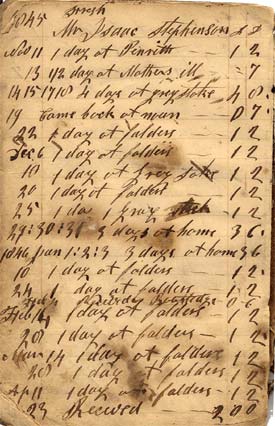 1845 Mr Isaac Stephenson
Nov 11 1 day at Penrith — 1 2
13 1/2 day at Mothers ill — 7
14 15 17 18 4 day at grey stoke 4 8
19 Came back at noon — 0 7
22 1 day at falders 1 2
Dec 6 1 day at falders 1 2
10 1 day at Grey stoke 1 2
20 1 day at falders 1 2
25 1 da
29:30:31 3 days at home 3 6
1846 Jan 1:2:3 3 days at home 3 6
10 1 day at falders — 1 2
24 1 day at falders — 1 2
0 6
Feb 14 1 day at falders — 1 2
28 1 day at falders — 1 2
Mar 14 1 day at falders 1 2
28 1 day at falders 1 2
Ap 11 1 day at falders — 1 2
23 Received — 2 0 0